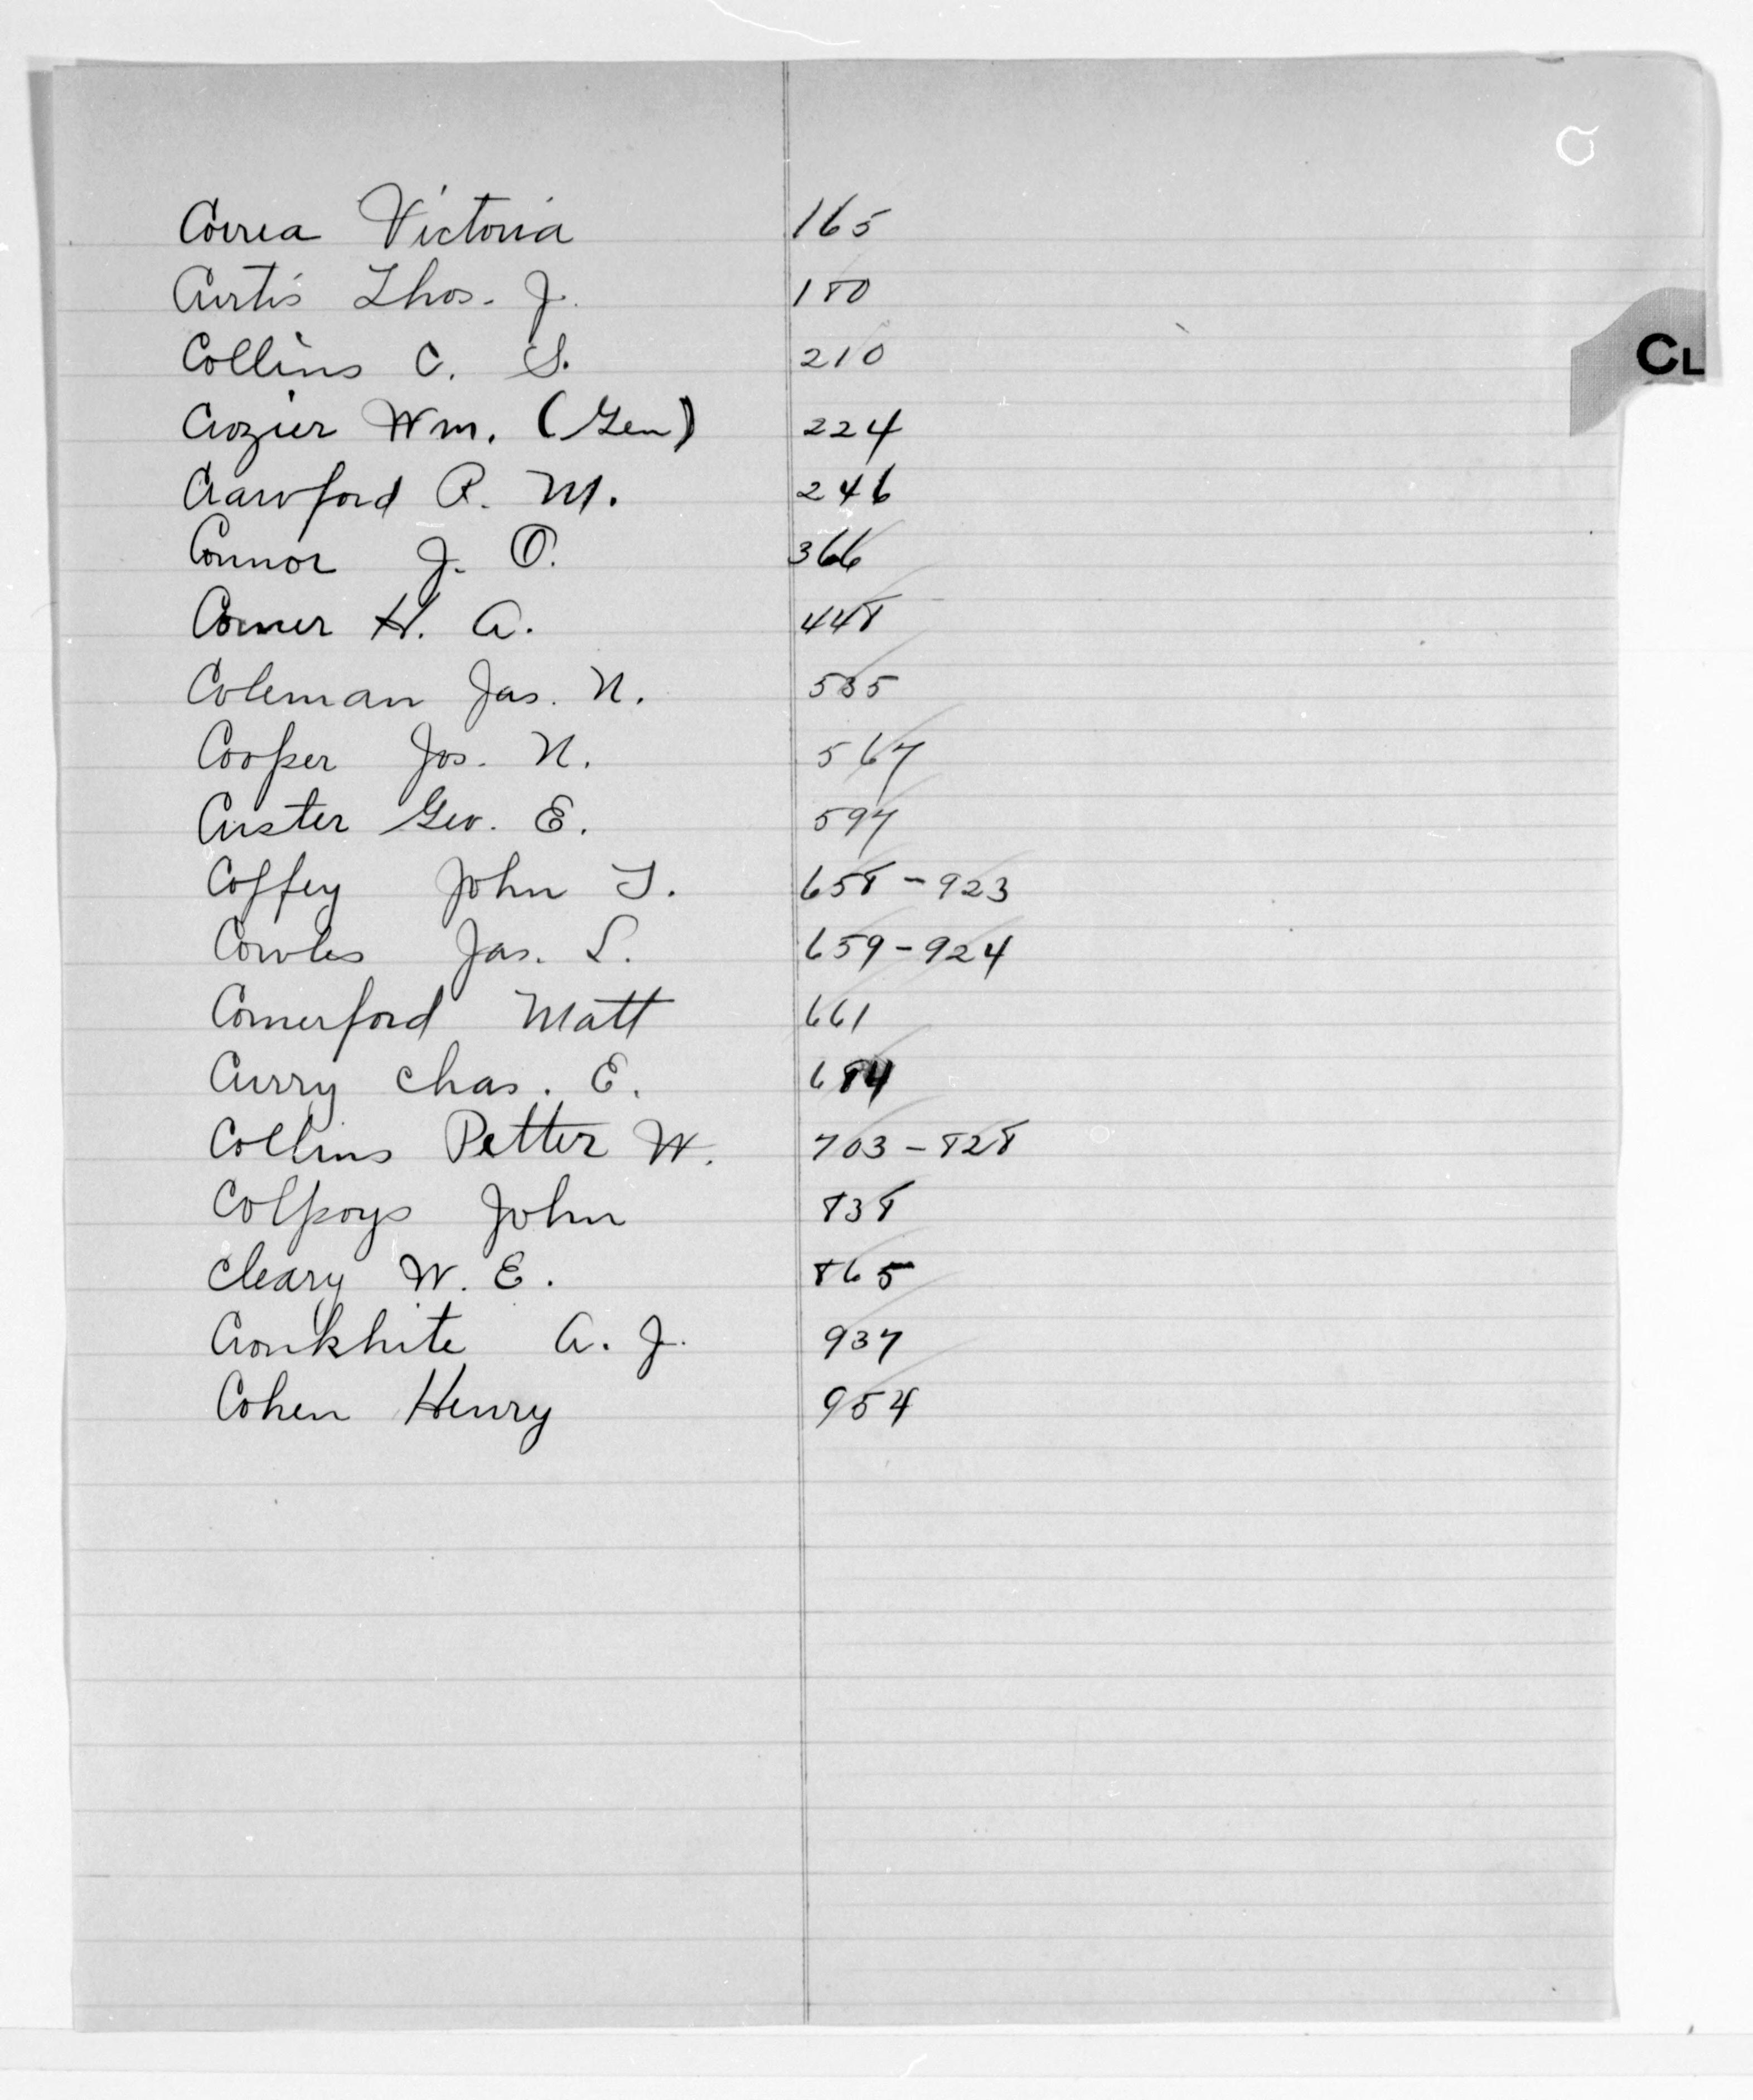 C
CL
Correa Victoria 165
Curtis Thos. J. 180
Collins C. S. 210
Crozier Wm. (Gen) 224
Crawford R. M. 246
Connor J. O. 366
Comer H. A. 448
Coleman Jas. N. 535
Cooper Jos. N. 567
Custer Geo. E. 597
Coffey John T. 658 - 923
Cowles Jas. L. 659 - 924
Comerford Matt 661
Curry Chas. E. 684
Collins Petter W. 703 - 828
Colpoys John 838
Cleary W. E. 865
Cronkhite A. J. 937
Cohen Henry 954